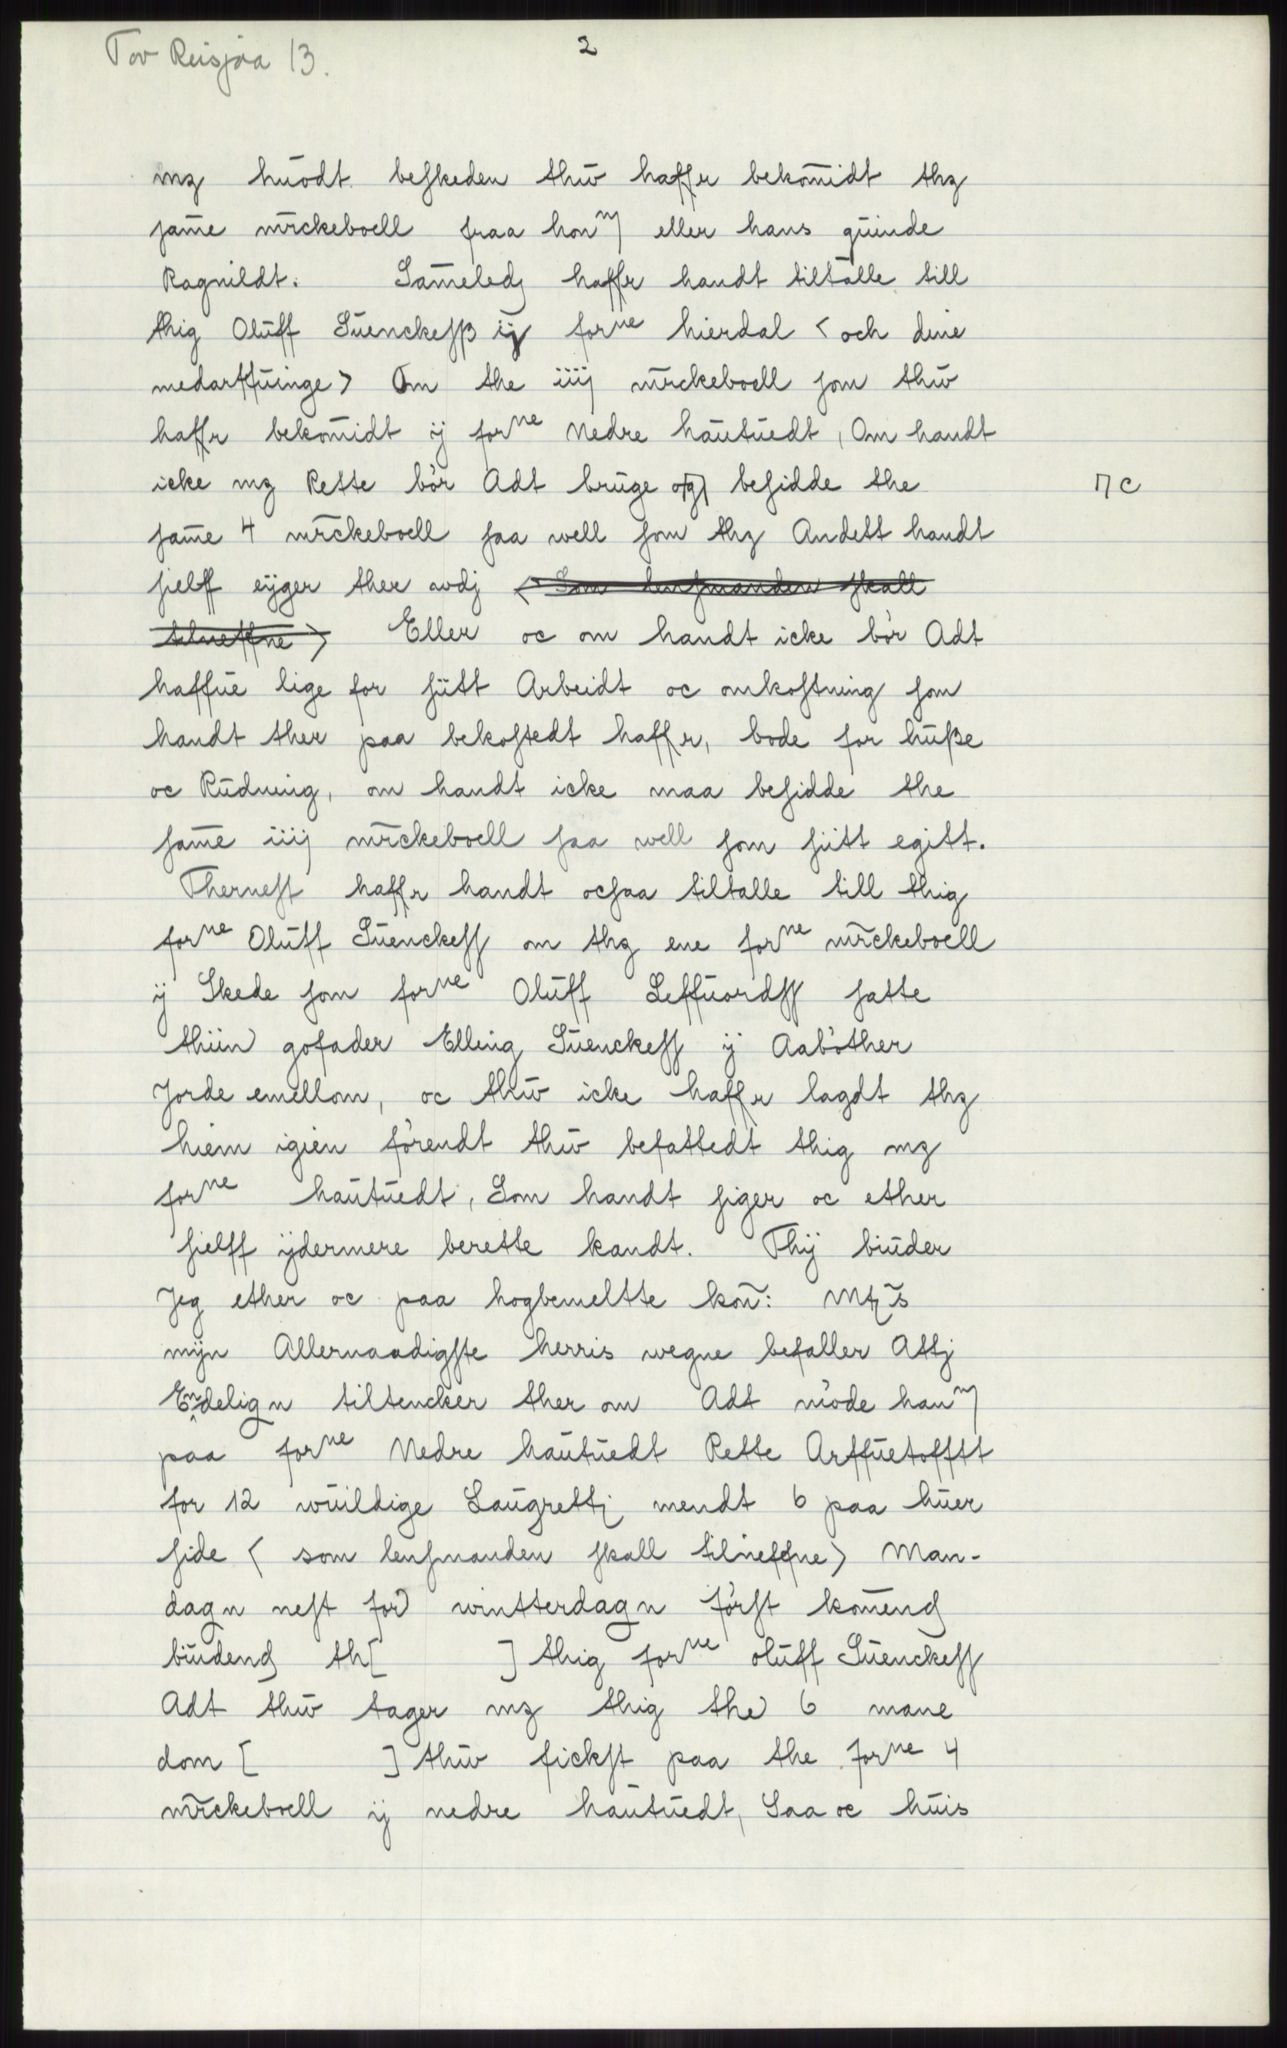 Tov Reisjåa 13.
2
mz huodt beskeden thw haffr bekom̄idt thz
sam̄e mrckeboell fraa honm eller hans quinde
Ragnildt. Sam̄eledꝭ haffr handt tiltalle till
thig Oluff Suenckeſß ij forne hierdal < och dine
medarffuinge > Om the iiij mr̄ckeboell som thw
haffr bekom̄idt ij forne Nedre hautuedt, Om handt
icke mz Rette bør Adt bruge og besidde the
⁊ c
sam̄e 4 mr̄ckeboell saa well som thz Andett handt
sielff eyger ther wdj <Som lensmanden skall
tilneffne> Eller oc om handt icke bør Adt
haffue lige for siitt Arbeidt oc omkostning som
handt ther paa bekostedt haffr, bode for huße
oc Rudning, om handt icke maa besidde the
sam̄e iiij mr̄ckeboell saa well som siitt egitt.
Thernest haffr handt ocsaa tiltalle till thig
forne Oluff Suenckeſſ om thz ene forne mr̄ckeboell
ij Skede som forne Oluff Leffuordſſ satte
thiin gofader Elling Suenckeſſ ij Aabøther
Jorde emellom, oc thw icke haffr lagdt thz
hiem igien førendt thw befattedt thig mz
forne hautuedt, Som handt siger oc ether
sielff ydermere berette kandt. Thij biuder
Jeg ether oc paa hogbemeltte kon̄: Mtz̄s
mijn Allernaadigste herris wegne befaller Attj
Endelign tiltencker ther om Adt møde hanm
paa forne Nedre hautuedt Rette Arffuetofftt
for 12 wuildige Laugrettj mendt 6 paa huer
side < som lensmanden skall tilneffne > Man-
dagn nest for wintterdagn først kom̄endꝭ
biudendꝭ th[ ] thig forne oluff Suenckeſſ
Adt thw tager mz thig the 6 mane
dom [ ] thw fickst paa the forne 4
mr̄ckeboell ij nedre hautuedt, Saa oc huis